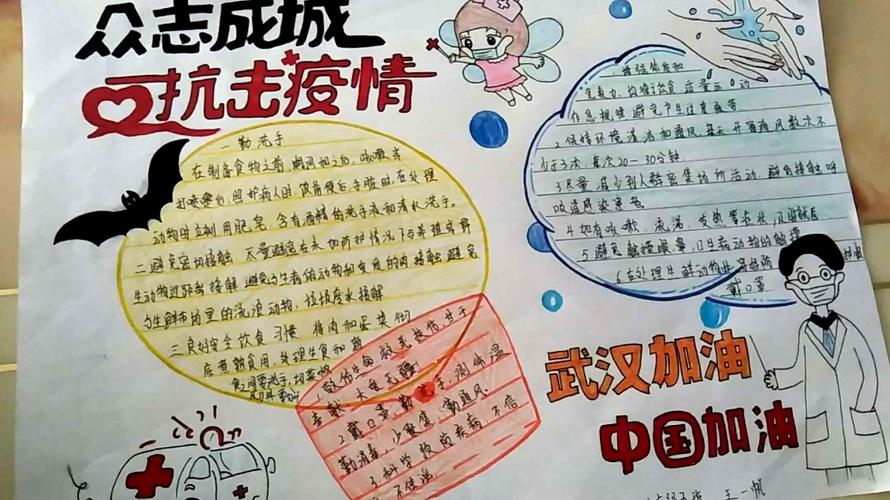 众志成城
抗击疫情
一 勤洗手
在制备食物之前、期间和之后，咳嗽或
打喷嚏后，照护病人时，饭前便后，手脏时，在处理
动物时立刻用肥皂，含有酒精的洗手液和清水洗手。
二 避免密切接触 尽量避免在未加防护情况下与养殖或野
生动物近距离接触 避免与生病的动物和变质的肉接触 避免
与生鲜市场里的流浪动物，垃圾废水接触
三 良好安全饮食习惯 将肉和蛋类彻
底煮熟食用，处理生食和熟
食间要洗手，切菜
1 敬佑生命，救死扶伤，甘于
奉献，大爱无疆
2 戴口罩，勤洗手，测体温
勤消毒，少聚集，勤通风。
3 科学预防疾病 不信
不传谣
一 增强体质和
免疫力，均衡饮食 适量运动
作息规律 避免产生过度疲劳
2 保持环境清洁和通风 每天开窗通风数次不
少于3次，每次20－30分钟
3 尽量减少到人群密集场所活动，避免接触呼
吸道感染患者
4 如有咳嗽 流涕，发热等症状，
5 避免触摸眼鼻口 动物的触摸
6 在处理生鲜动物
戴口罩
武汉加油
中国加油
王一帆